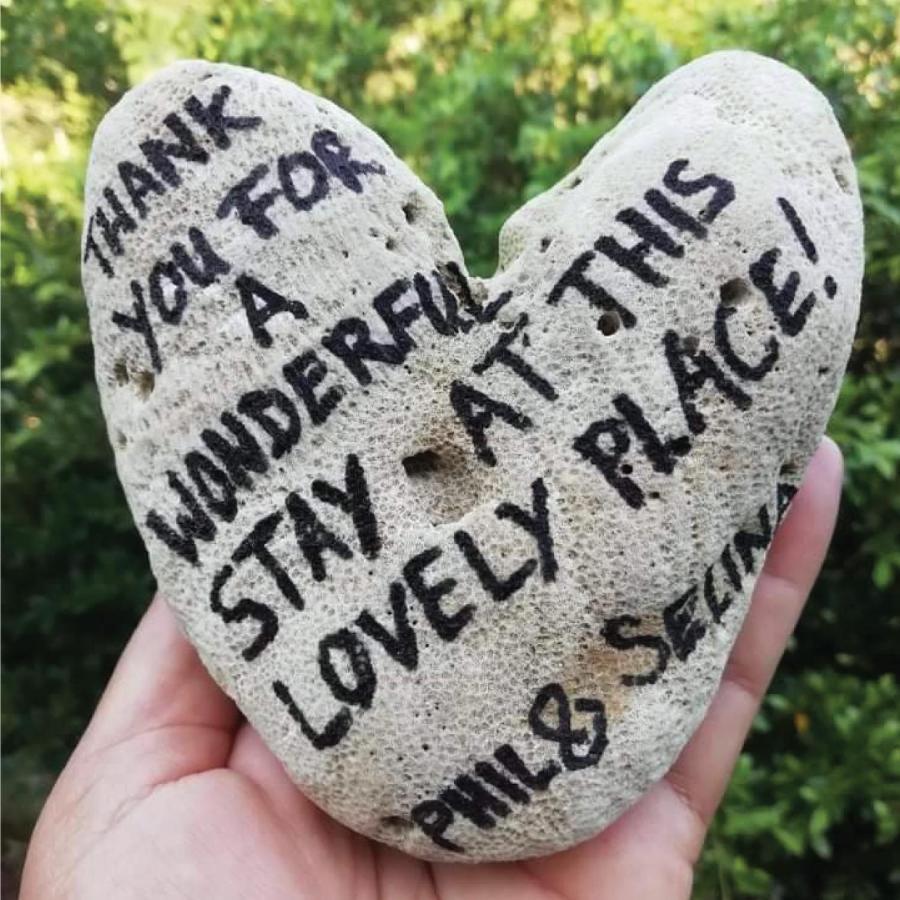 THANK
YOU FOR
A
WONDERFUL
STAY AT THIS
LOVELY PLACE!
PHIL & SELINA